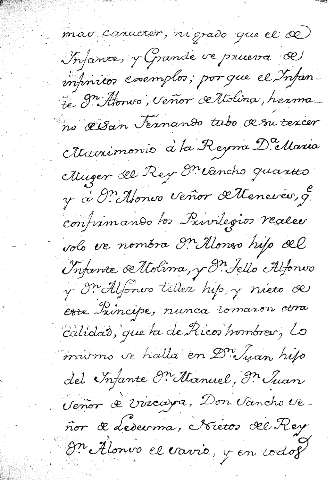 mas caracter, ni grado que el de
Infante, y Grande se prueva de
infinitos exemplos; por que el Infan-
te Dn. Alonso, Señor de Molina, herma-
no de San Fernando tubo de su tercer
Matrimonio á la Reyna Da. Maria
Muger del Rey Dn. Sancho quarto
y á Dn. Alonso Señor de Meneses, q.e
confirmando los Privilegios reales
solo se nombra Dn. Alonso hijo del
Infante de Molina, y Dn. Tello Alfonso
y Dn. Alfonso tellez hijo, y nieto de
este Principe, nunca tomaron otra
calidad, que la de Ricos hombres, lo
mismo se halla en Dn. Juan hijo
del Infante Dn. Manuel, Dn. Juan
Señor de vizcaya, Don Sancho se-
ñor de Ledesma, Nietos del Rey
Dn. Alonso el savio, y en todos